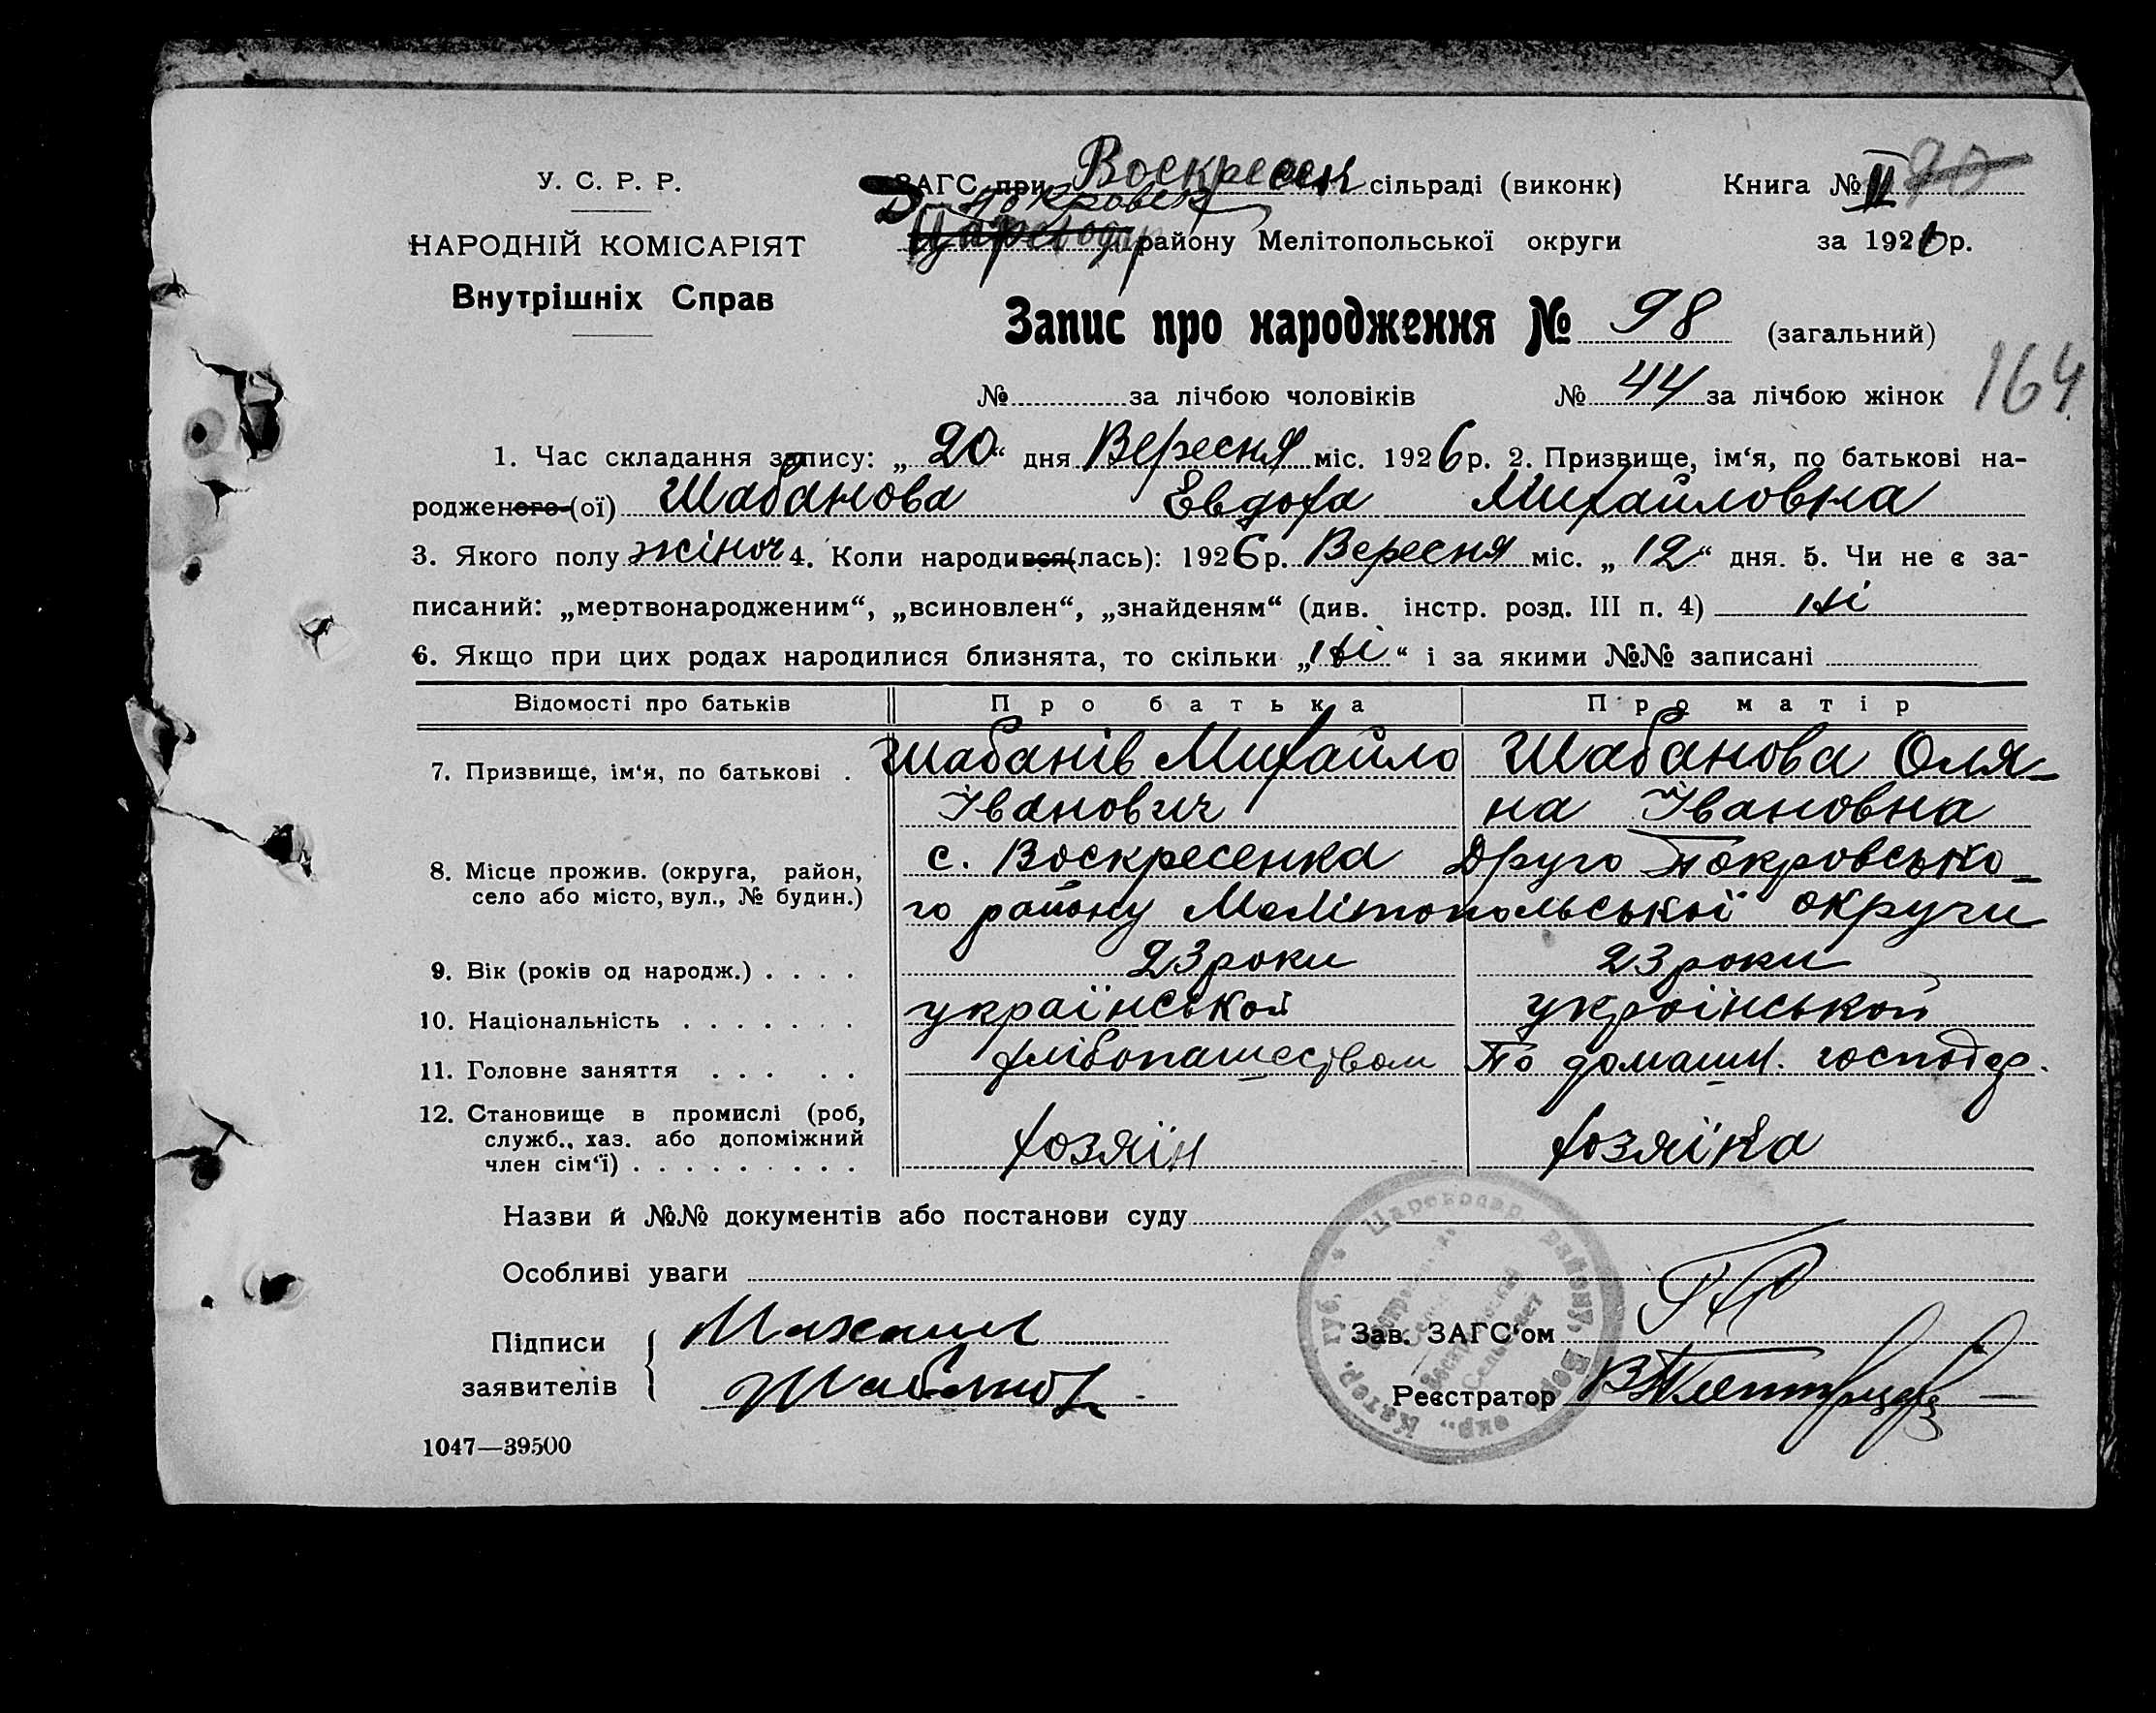 У. С. Р. Р.
НАРОДНІЙ КОМІСАРІЯТ
Внутрішніх Справ
ЗАГС при Воскресен сільраді (виконк)
Д-Покровск
Цареводар району Мелітопольської округи
Книга № II 90
за 1926 р.
Запис про народження № 98 (загальний)
№ за лічбою чоловіків № 44 за лічбою жінок
164
1. Час складання запису: „20“ дня Вересня міс. 1926 р. 2. Призвище, ім‘я, по батькові на-
родженого (ої) Шабанова Евдоха Михайловна
3. Якого полу жіноч 4. Коли народився(лась): 1926 р. Вересня міс. „12“ дня. 5. Чи не є за-
писаний: „мертвонародженим“, „всиновлен“, „знайденям“ (див. інстр. розд. III п. 4) ні
6. Якщо при цих родах народилися близнята, то скільки „ні“ і за якими №№ записані
Відомості про батьків Про батька Про матір
7. Призвище, ім‘я, по батькові . Шабанів Михайло Шабанова Оля-
Іванович на Івановна
8. Місце прожив. (округа, район, село або місто, вул., № будин.) с. Воскресенка Друго Покровсько-
го району Мелітопольської округи
9. Вік (років од народж.) . . . . 23 роки 23 роки
10. Національність . . . . . . . української української
11. Головне заняття . . . . . хлібопашеством По домашн. господар.
12. Становище в промислі (роб,
служб., хаз. або допоміжний
член сім‘ї) . . . . . . . . . хозяїн хозяїка
Назви й №№ документів або постанови суду
Особливі уваги
Підписи заявителів Михаил
Шабанов
Зав. ЗАГС‘ом
Реєстратор
Цареводар. району, Берд. окр., Катер. губ.
1047—39500